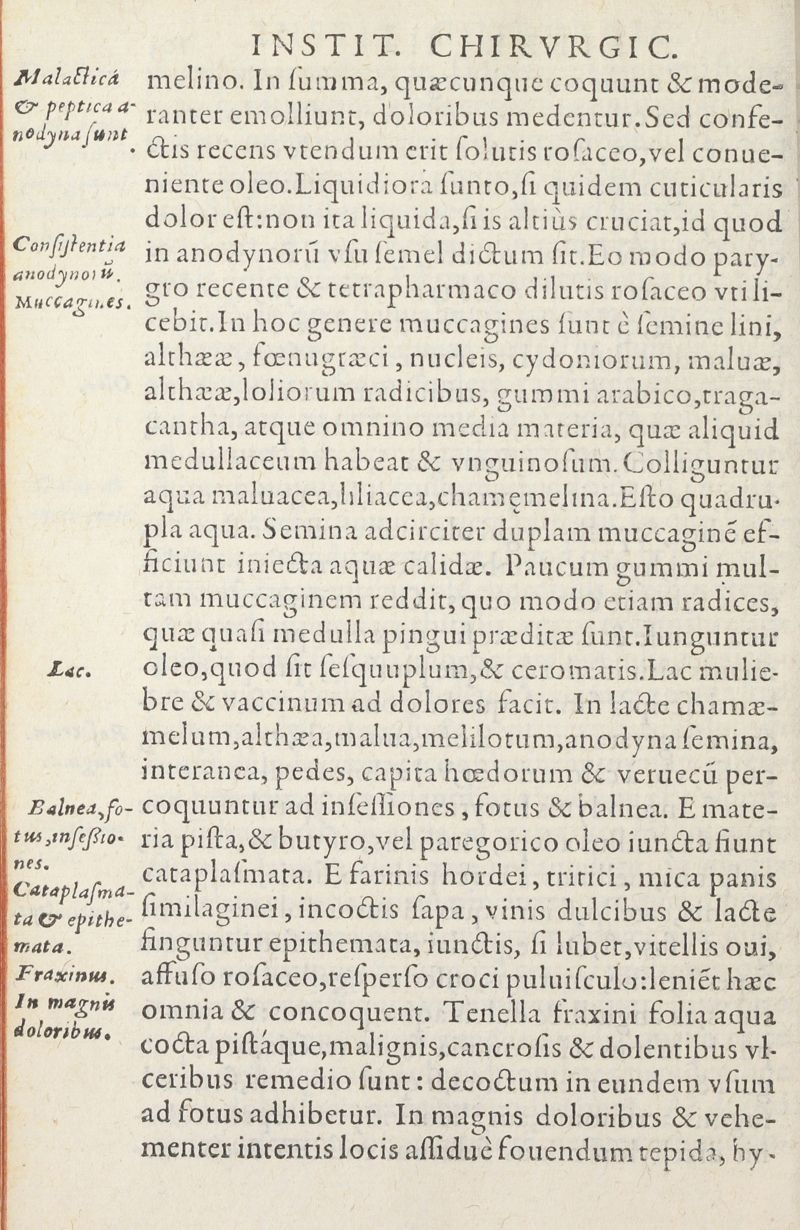 INSTIT. CHIRVRGIC.
Malactica
& peptica a-
nodyna sunt
.
melino. In summa, quæcunque coquunt & mode-
ranter emolliunt, doloribus medentur. Sed confe-
ctis recens vtendum erit solutis rosaceo, vel conue-
niente oleo. Liquidiora sunto, si quidem cuticularis
dolor est: non ita liquida, si is altiùs cruciat, id quod
Consistentia
anodynorū.
Muccagines.
in anodynorū vsu semel dictum sit. Eo modo pary-
gro recente & tetrapharmaco dilutis rosaceo vti li-
cebit. In hoc genere muccagines sunt è semine lini,
althææ, fœnugræci, nucleis, cydoniorum, maluæ,
althææ, loliorum radicibus, gummi arabico, traga-
cantha, atque omnino media materia, quæ aliquid
medullaceum habeat & vnguinosum. Colliguntur
aqua maluacea, liliacea, chamęmelina. Esto quadru-
pla aqua. Semina adcirciter duplam muccaginẽ ef-
ficiunt iniecta aquæ calidæ. Paucum gummi mul-
tam muccaginem reddit, quo modo etiam radices,
quæ quasi medulla pingui præditæ sunt. Iunguntur
Lac.
oleo, quod sit sesquuplum, & ceromatis. Lac mulie-
bre & vaccinum ad dolores facit. In lacte chamæ-
melum, althæa, malua, melilotum, anodyna semina,
interanea, pedes, capita hœdorum & veruecū per-
Balnea, fo-
tus, insessio-
nes.
coquuntur ad insessiones, fotus & balnea. E mate-
ria pista, & butyro, vel paregorico oleo iuncta fiunt
Cataplasma-
ta & epithe-
mata.
cataplasmata. E farinis hordei, tritici, mica panis
similaginei, incoctis sapa, vinis dulcibus & lacte
finguntur epithemata, iunctis, si lubet, vitellis oui,
Fraxinus.
In magnis
doloribus.
affuso rosaceo, resperso croci puluisculo: leniẽt hæc
omnia & concoquent. Tenella fraxini folia aqua
cocta pistáque, malignis, cancrosis & dolentibus vl-
ceribus remedio sunt: decoctum in eundem vsum
ad fotus adhibetur. In magnis doloribus & vehe-
menter intentis locis assiduè fouendum tepida, hy-